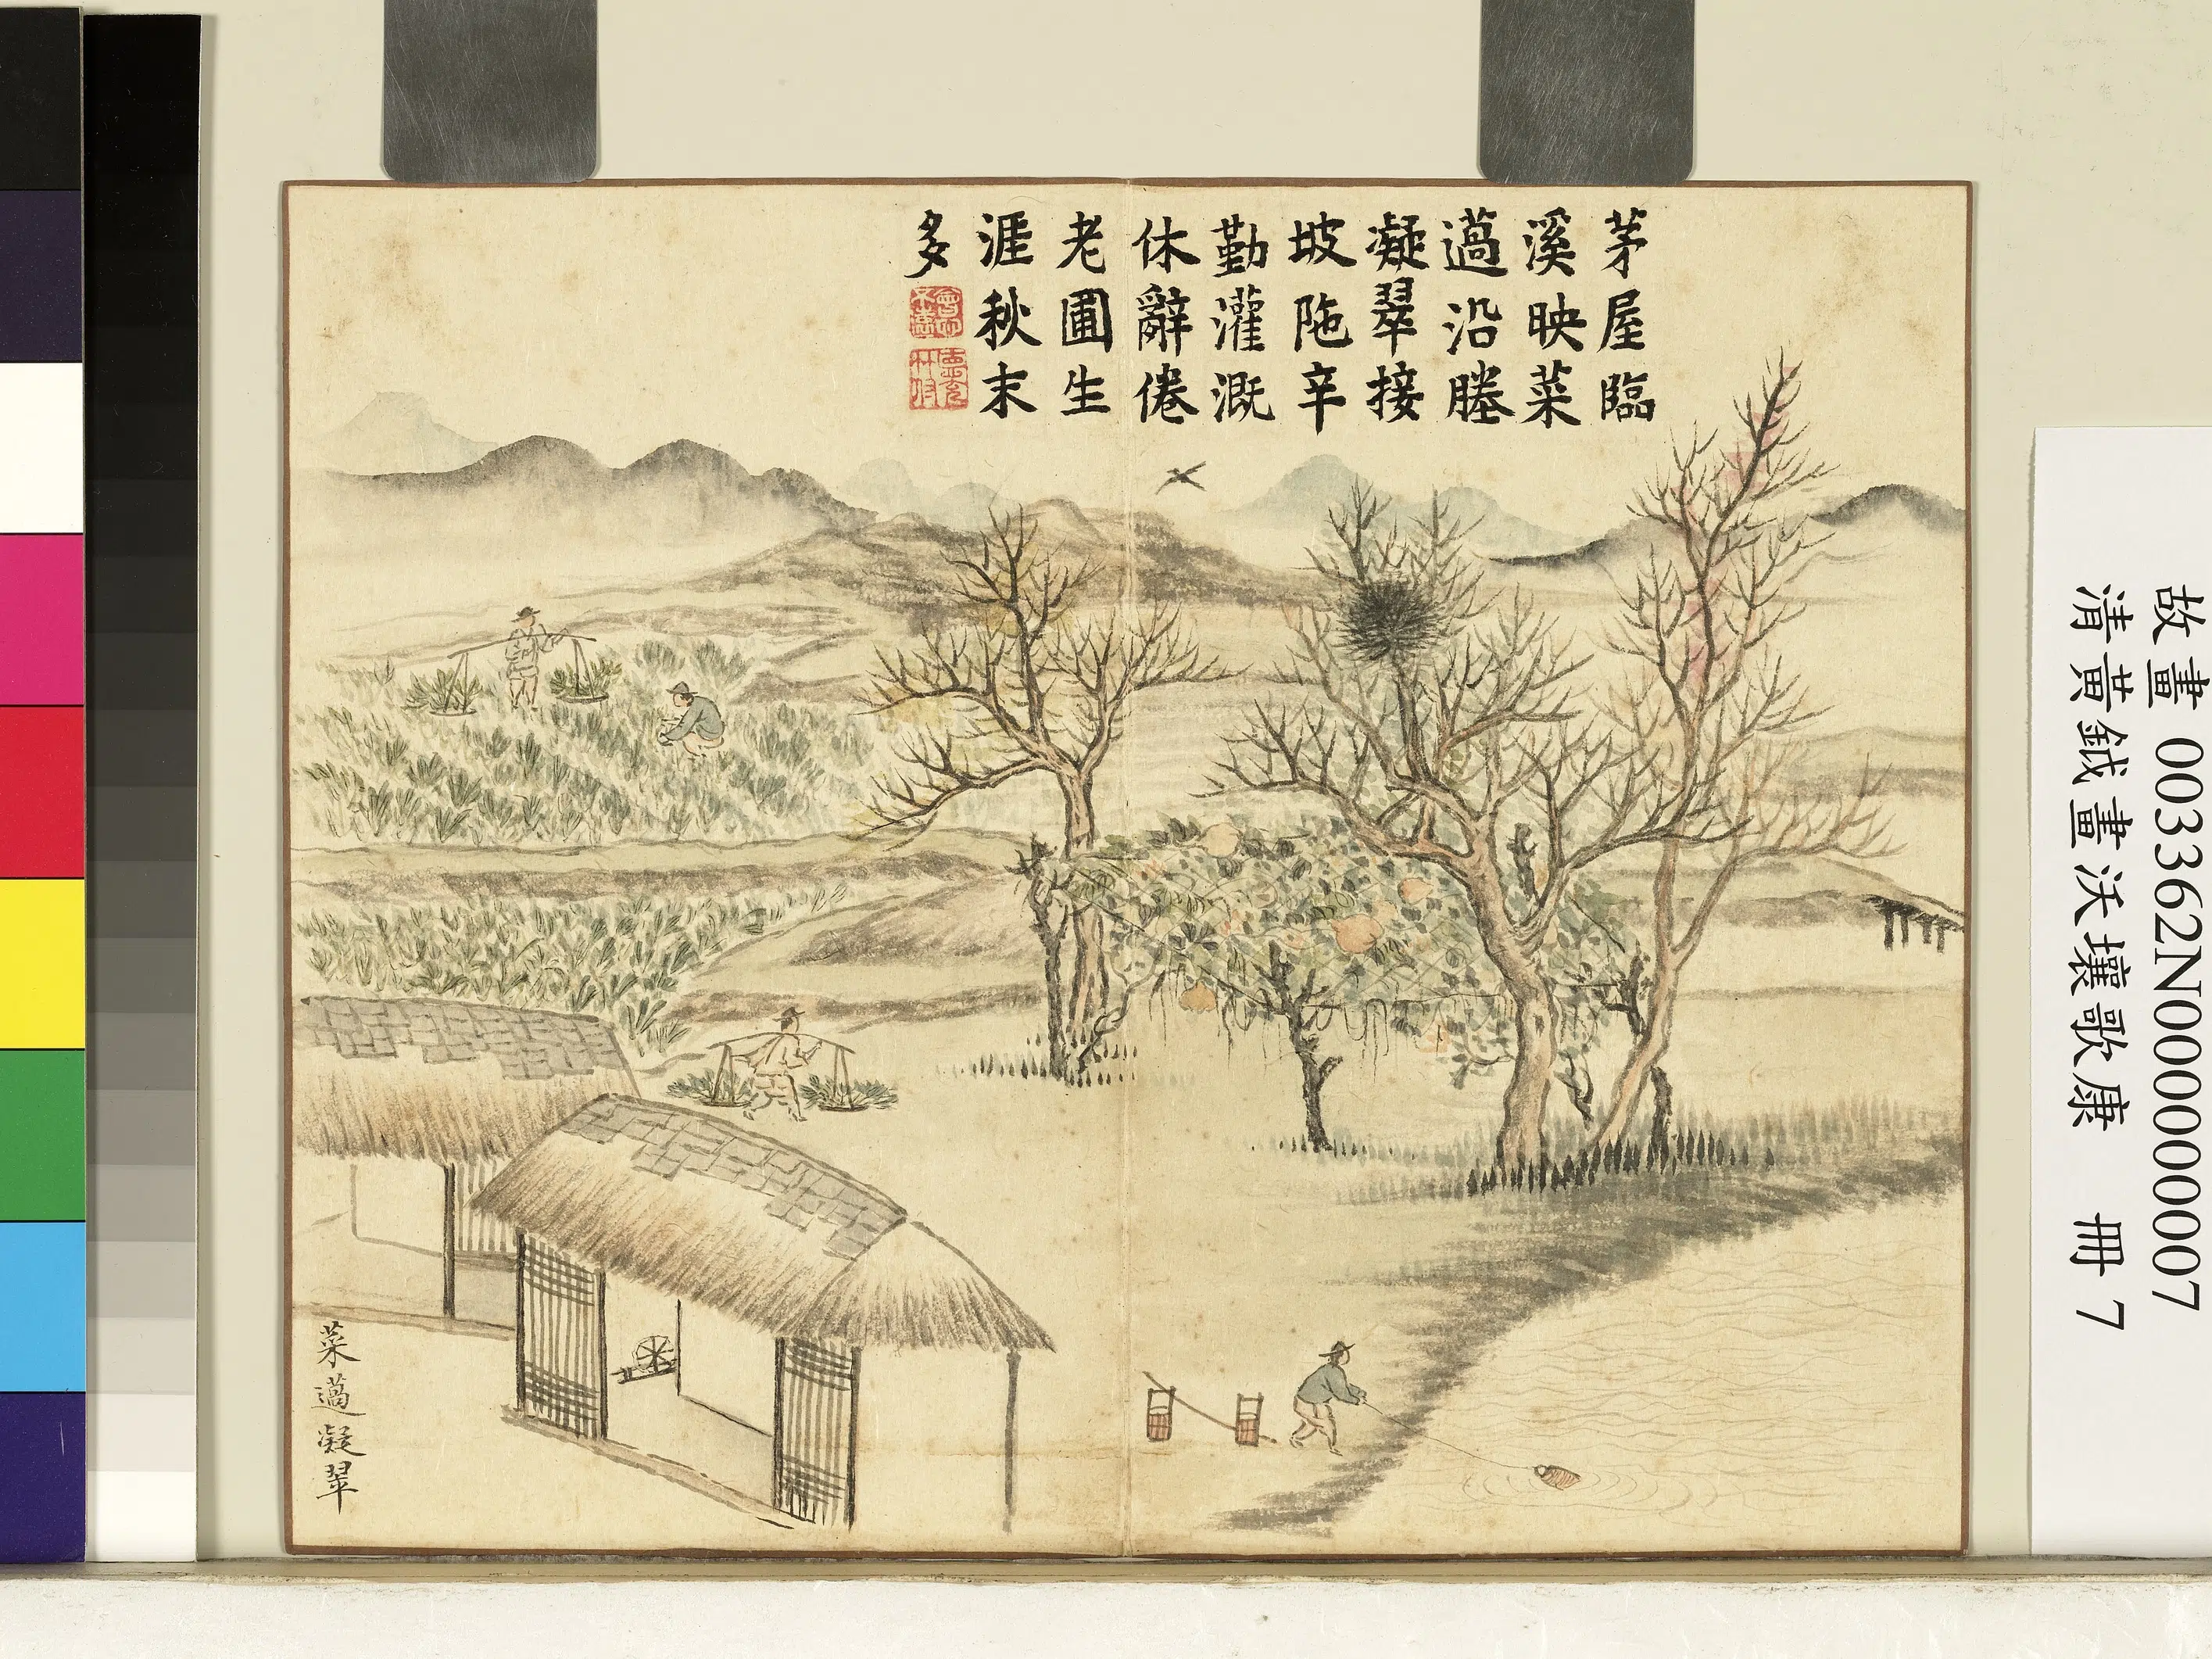 茅屋臨
溪映菜
薖沿塍
凝翠接
坡陁辛
勤灌溉
休辭倦
老圃生
涯秋末
多
菜薖凝翠
故畫 003362N000000007
清黃鉞畫沃壤歌康 冊 7